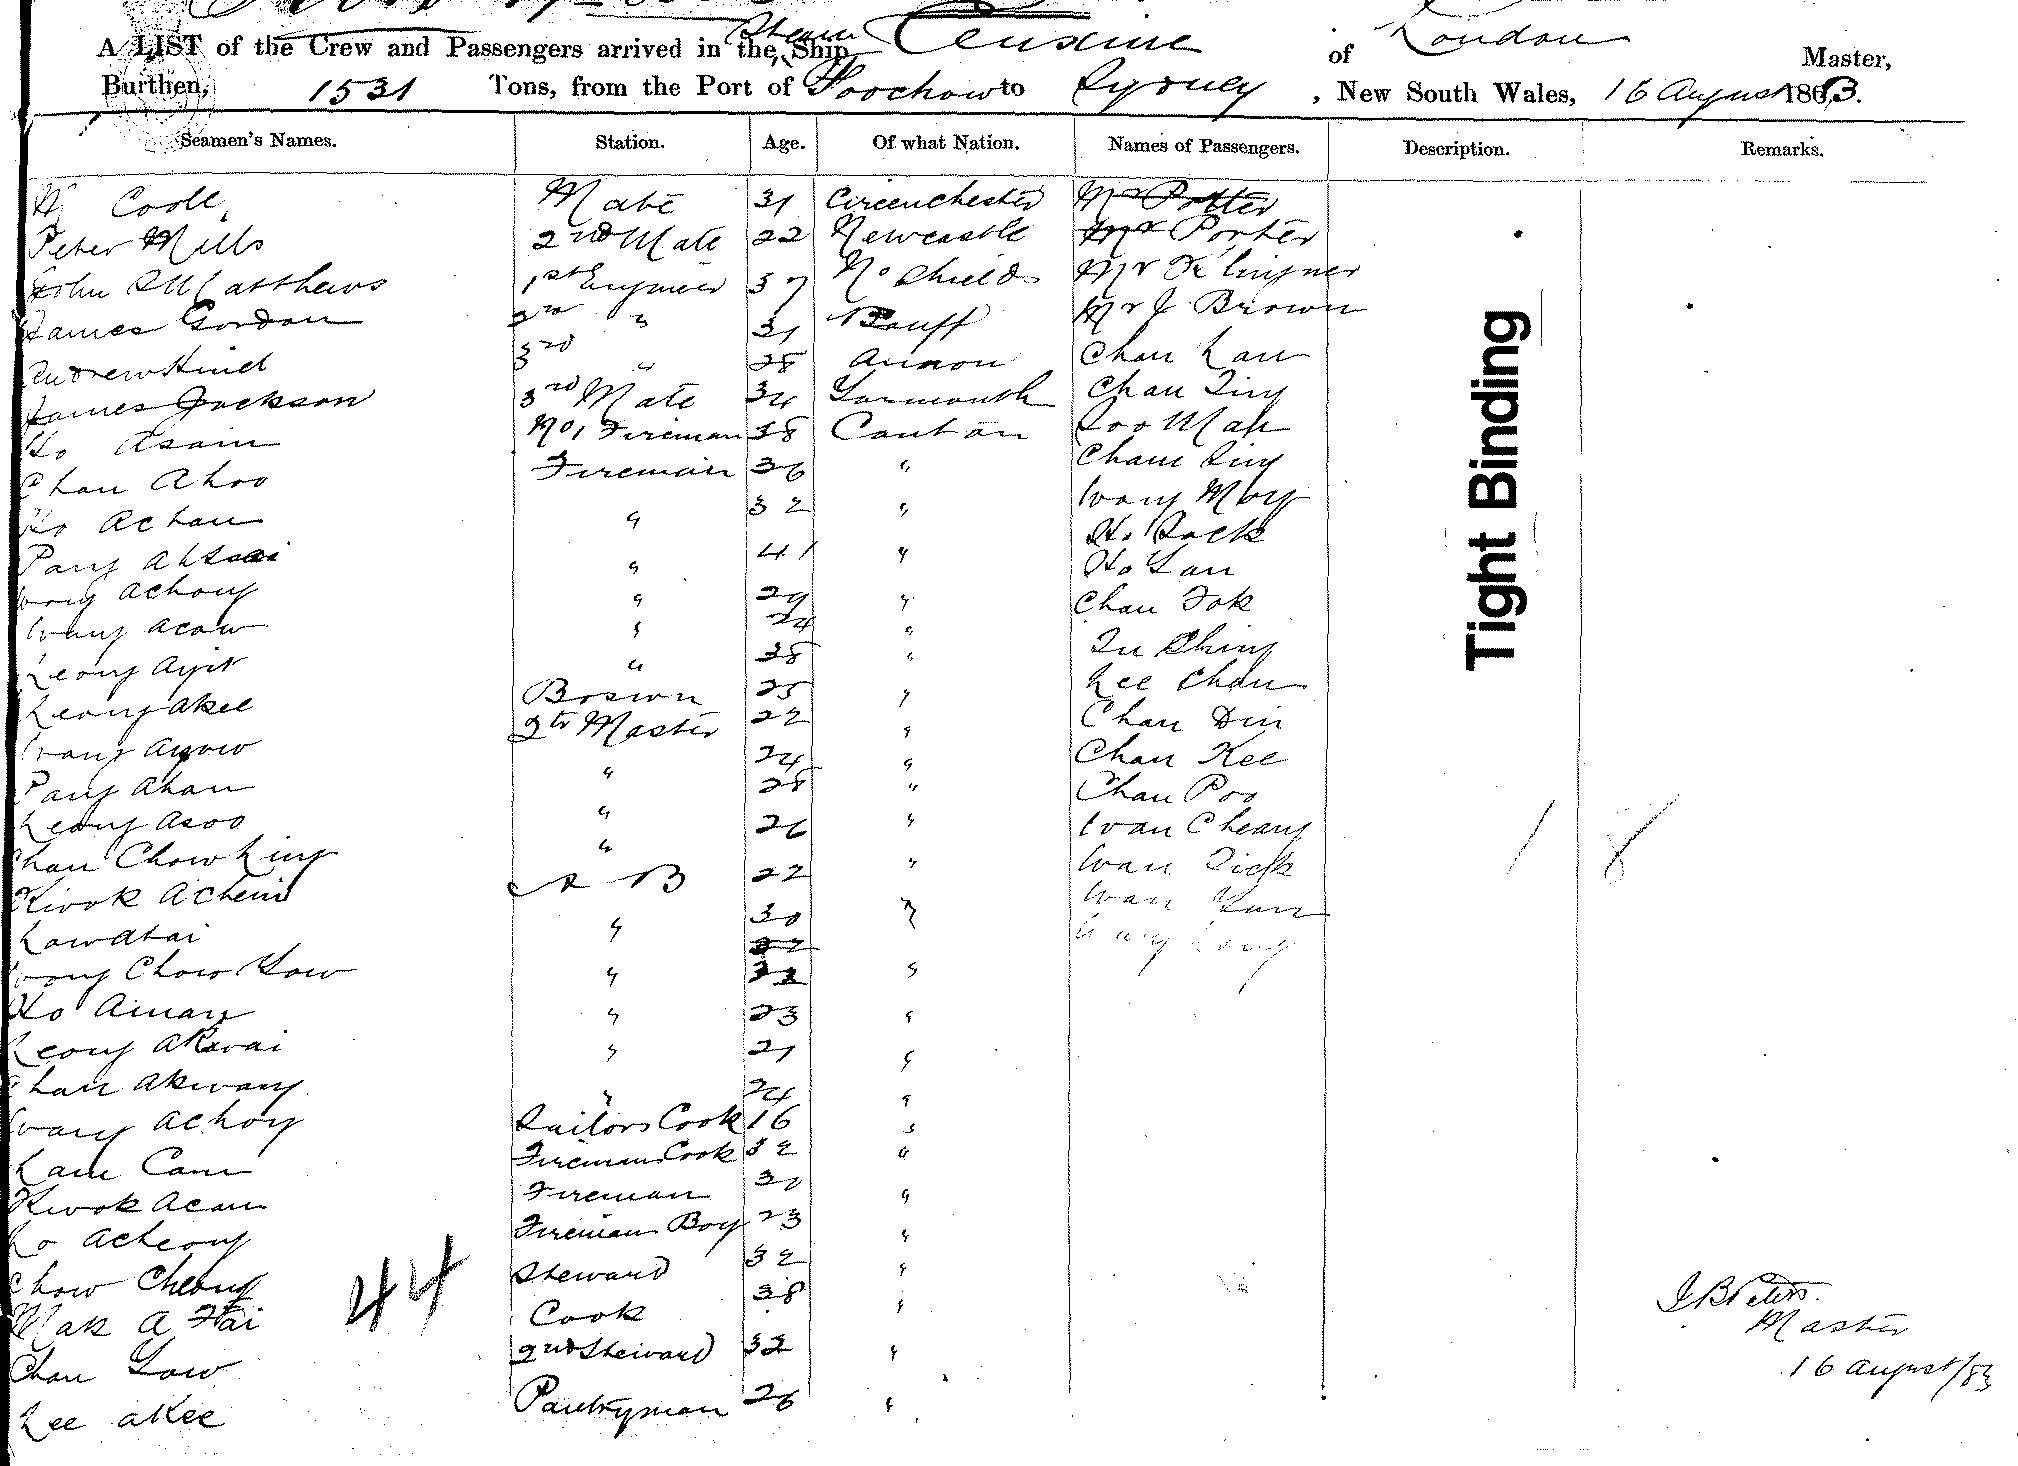 A LIST of the Crew and Passengers arrived in the Steam Ship Euxine of London Master,
Burthen, 1531 Tons, from the Port of Foochow to Sydney, New South Wales, 16 August 1883.
Seamen's Names. Station. Age. Of what Nation. Names of Passengers. Description. Remarks.
Coole Mate 31 Cirenchester Mr Potter
Peter Mills 2nd Mate 22 Newcastle Mr Porter
John Matthews 1st Engineer 37 No Shields Mr Klingner
James Gordon 2nd " 31 Banff Mr J Brown
Andrew Hind 3rd " 28 Annon Chan Lau
James Jackson 3rd Mate 34 Yarmouth Chan Ting
Ho Asam No 1 Fireman 38 Canton Soo Mah
Chan Ahoo Fireman 36 " Cham Sing
Ho Achau " 32 " Wong Moy
Pang Ahsai " 41 " Ho Sock
Wong Achong " 29 " Ho Lau
Wang Acow " 24 " Chan Fok
Leong Ayit " 38 " Su Shing
Leong Akee Boswn 25 " Lee Chau
Wong Ayow Qtr Master 22 " Chan Din
Pang Ahan " 24 " Chan Kee
Leong Asoo " 28 " Chan Poo
Chan Chow Ling " 26 " Wan Cheang
Kwok Achein A B 22 " Wan Tick
Low Ahai " 30 " Wan Yun
Wong Chow Yow " 32 "
Ho Aman " 23 "
Leong Akwai " 21 "
Chan Akwang " 24 "
Wang Achoy Sailors Cook 16 "
Lam Cam Firemans Cook 32 "
Kwok Acam Fireman 31 "
Lo Acheong Fireman Boy 23 "
Chow Cheong Steward 32 "
Mak A Hai Cook 38 "
Chan Yow 2nd Steward 32 "
Lee Akee Pantryman 26 "
44
18
Tight Binding
J B Peters
Master
16 August/83